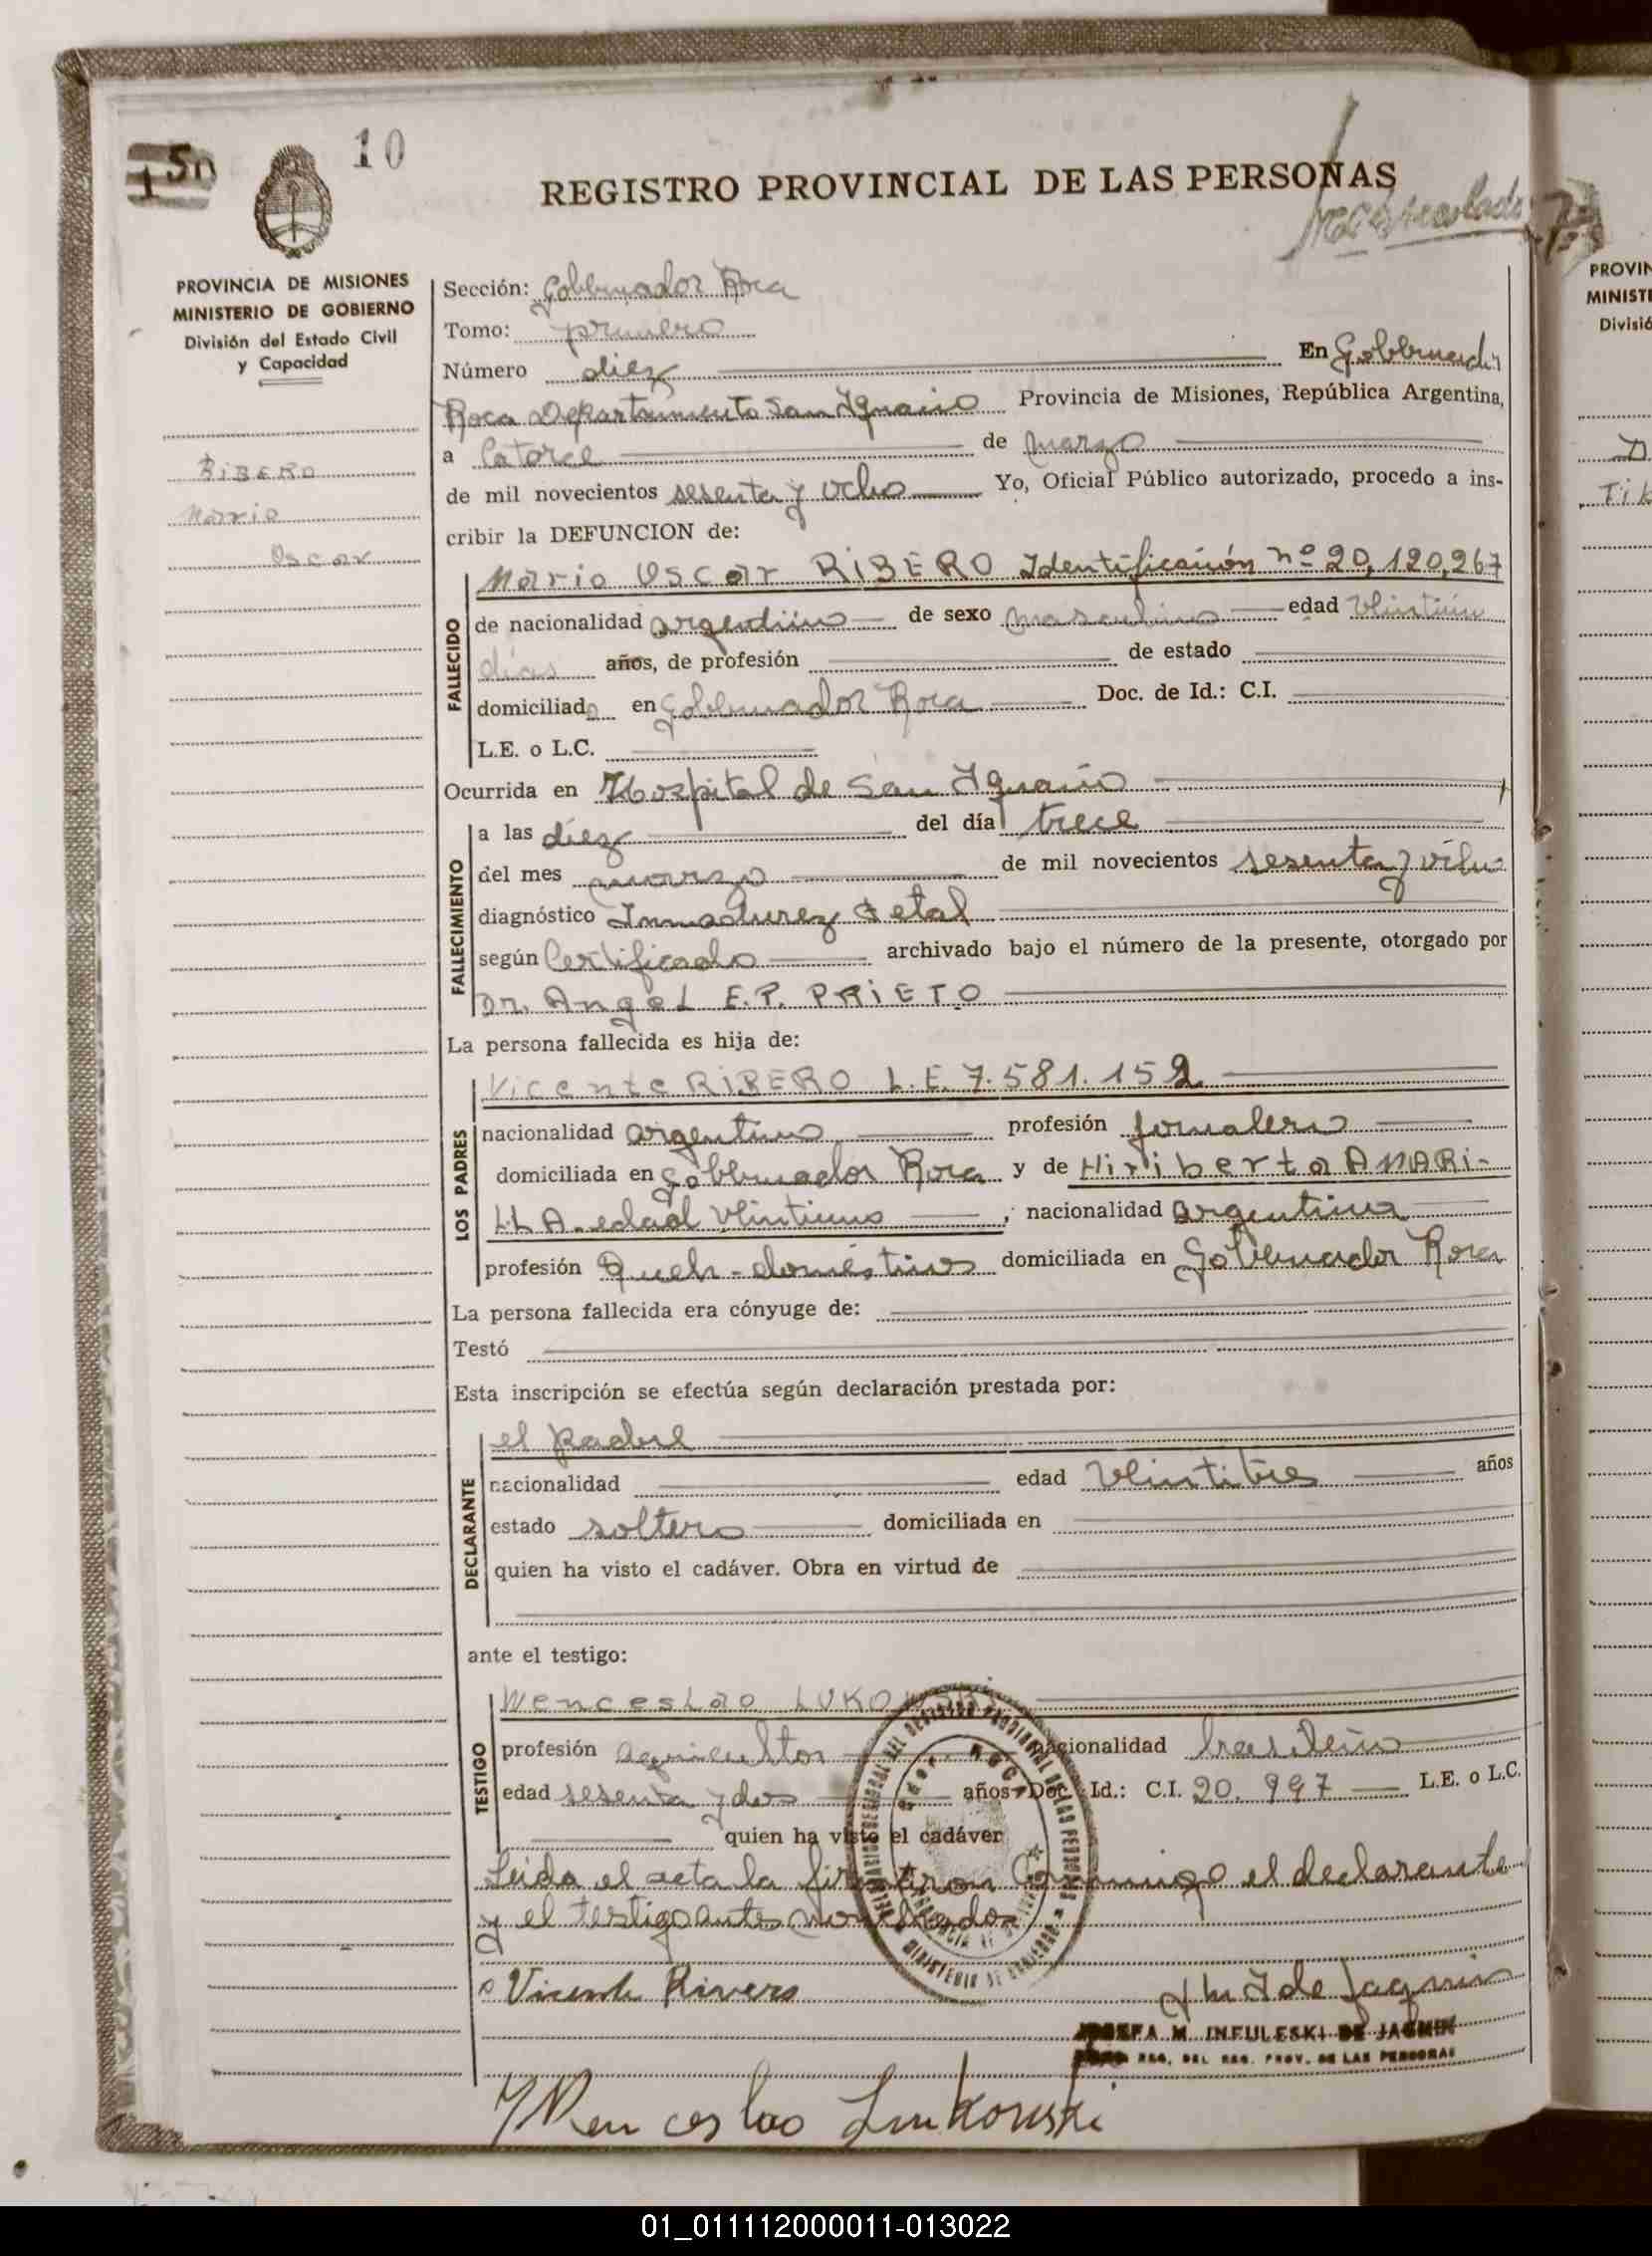 10
REGISTRO PROVINCIAL DE LAS PERSONAS
PROVINCIA DE MISIONES
MINISTERIO DE GOBIERNO
División del Estado Civil
y Capacidad
RIBERO
Mario
Oscar
Sección: Gobernador Roca
Tomo: primero
Número diez En Gobernador
Roca Departamento San Ignacio Provincia de Misiones, República Argentina,
a Catorce de marzo
de mil novecientos sesenta y ocho Yo, Oficial Público autorizado, procedo a ins-
cribir la DEFUNCION de:
FALLECIDO
Mario Oscar RIBERO Identificación nº 20,120,267
de nacionalidad argentino de sexo masculino edad veintiún
días años, de profesión de estado
domiciliado en Gobernador Roca Doc. de Id.: C.I.
L.E. o L.C.
Ocurrida en Hospital de San Ignacio
FALLECIMIENTO
a las diez del día trece
del mes marzo de mil novecientos sesenta y ocho
diagnóstico Inmadurez Fetal
según Certificado archivado bajo el número de la presente, otorgado por
Dr. Angel E.P. PRIETO
La persona fallecida es hija de:
LOS PADRES
Vicente RIBERO L.E. 7.581.152
nacionalidad argentino profesión jornalero
domiciliada en Gobernador Roca y de Hiriberta AMARI-
LLA edad veintiuno, nacionalidad argentina
profesión Queh-domésticos domiciliada en Gobernador Roca
La persona fallecida era cónyuge de:
Testó
Esta inscripción se efectúa según declaración prestada por:
DECLARANTE
el padre
nacionalidad edad veintitres años
estado soltero domiciliada en
quien ha visto el cadáver. Obra en virtud de
ante el testigo:
TESTIGO
Wenceslao LUKOWSKI
profesión agricultor nacionalidad brasileño
edad sesenta y dos años, Doc. Id.: C.I. 20.997 L.E. o L.C.
quien ha visto el cadáver
Leida el acta la firmaron Conmigo el declarante
y el testigo antes nombrados
Vicente Rivero
JOSEFA M. INFULESKI DE JAQMIN
REG. DEL REG. PROV. DE LAS PERSONAS
Wenceslao Lukowski
PROVIN
MINISTE
Divisió
01_011112000011-013022